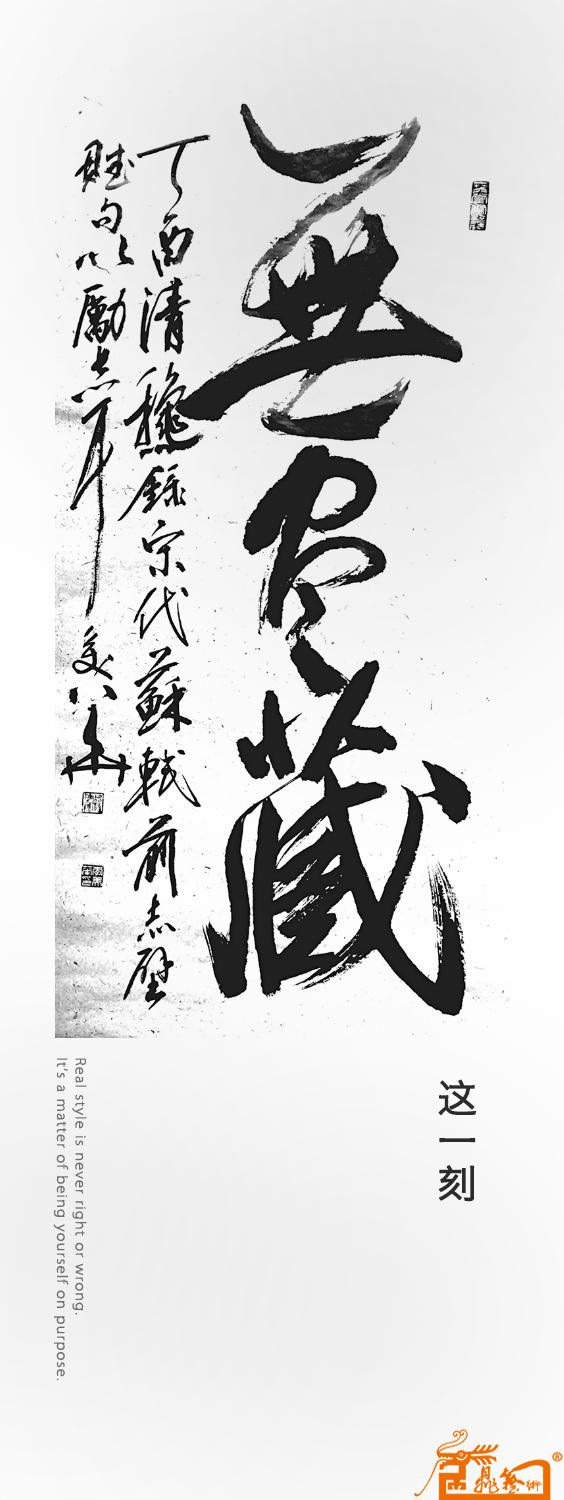 無尽藏
丁酉清穐錄宋代蘇軾前赤壁
賦句以勵志耳
这一刻
Real style is never right or wrong.
It's a matter of being yourself on purpose.